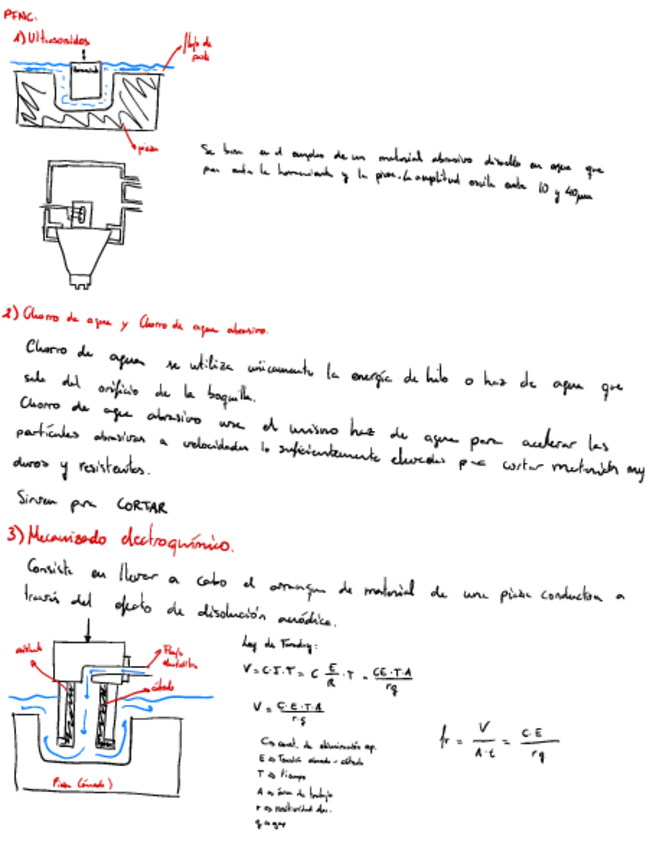 PFNC.
1) Ultrasonidos
flujo de
Herramienta
pieza
Se basa en el empleo de un material abrasivo disuelto en agua que
pasa entre la herramienta y la pieza. La amplitud oscila entre 10 y 40 μm
2) Chorro de agua y Chorro de agua abrasivo.
Chorro de agua se utiliza únicamente la energía de hilo o haz de agua que
sale del orificio de la boquilla.
Chorro de agua abrasivo usa el mismo haz de agua para acelerar las
partículas abrasivas a velocidades lo suficientemente elevadas para cortar materiales muy
duros y resistentes.
Sirven para CORTAR
3) Mecanizado electroquímico.
Consiste en llevar a cabo el arranque de material de una pieza conductora a
través del efecto de disolución anódica.
Ley de Faraday:
aislante
Flujo
electrolito
cátodo
V = C·I·T = C E/R · T = C·E·T·A / r g
V = C·E·T·A / r·g
fr = V / A·t = C·E / r g
C → const. de eliminación esp.
E → Tensión ánodo-cátodo
T → tiempo
A → área de trabajo
r → resistividad elec.
g → gap
Pieza (ánodo)